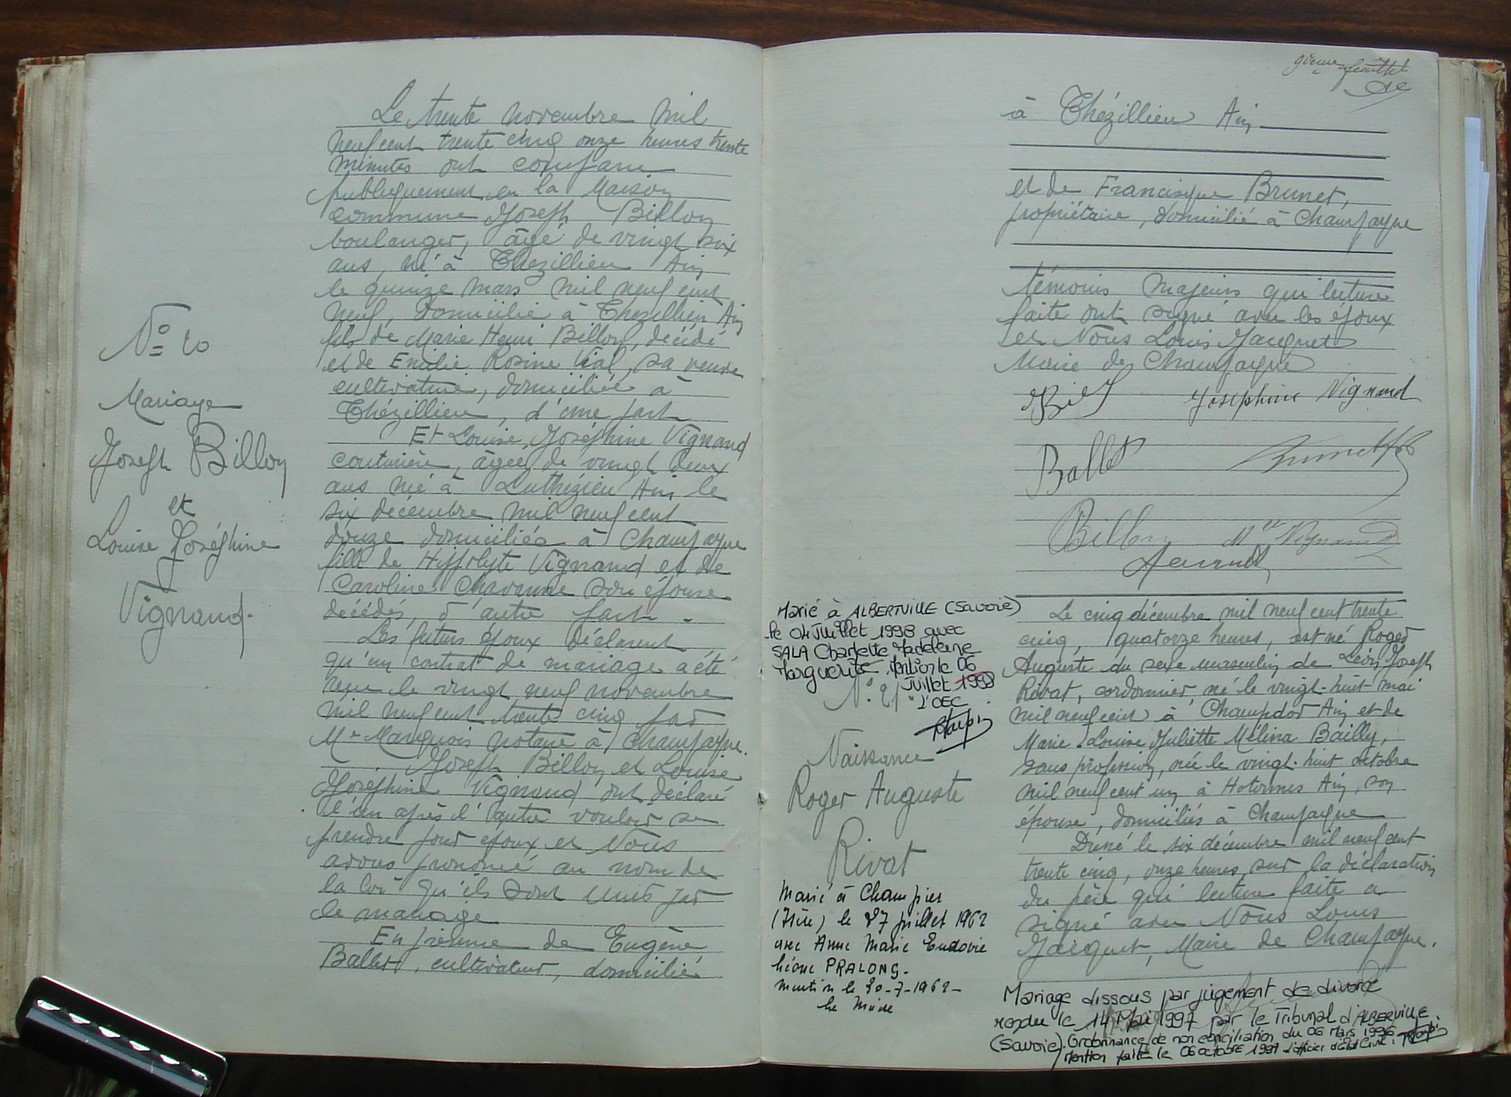 N° 20
Mariage
Joseph Billon
et
Louise Joséphine
Vignand.
Le trente novembre mil
neuf cent trente cinq onze heures trente
minutes ont comparu
publiquement en la Maison
commune Joseph Billon
boulanger, âgé de vingt six
ans, né à Thézillieu Ain
le quinze mars mil neuf cent
neuf, domicilié à Thézillieu Ain
fils de Marie Henri Billon, décédé
et de Emilie Rosine Vial, sa veuve
cultivatrice, domiciliée à
Thézillieu, d'une part
Et Louise Joséphine Vignand
couturière, âgée de vingt deux
ans née à Luthézieu Ain le
six décembre mil neuf cent
douze domiciliée à Champagne
fille de Hippolyte Vignand et de
Caroline Charvonne son épouse
décédés, d'autre part.
Les futurs époux déclarent
qu'un contrat de mariage a été
reçu le vingt neuf novembre
mil neuf cent trente cinq par
Me Marquois notaire à Champagne.
Joseph Billon et Louise
Joséphine Vignand ont déclaré
l'un après l'autre vouloir se
prendre pour époux et Nous
avons prononcé au nom de
la loi qu'ils sont unis par
le mariage
En présence de Eugène
Ballet, cultivateur, domicilié
9ième feuillet
à Thézillieu Ain
et de Francisque Brunet,
propriétaire, domicilié à Champagne
témoins majeurs qui lecture
faite ont signé avec les époux
et Nous Louis Jacquet
Maire de Champagne
Joséphine Vignand
Ballet
Brunet
Billon Vignand
Jacquet
Marié à ALBERTVILLE (Savoie)
le 04 Juillet 1998 avec
SALA Charlette Madeleine
Marguerite. Mention le 06
Juillet 1998
L'OEC
N° 21
Naissance
Roger Auguste
Rivat
Marié à Champier
(Isère) le 27 juillet 1962
avec Anne Marie Eudoxie
Léone PRALONG.
Mention le 30-7-1962-
Le Maire
Le cinq décembre mil neuf cent trente
cinq, quatorze heures, est né Roger
Auguste du sexe masculin de Léon Joseph
Rivat, cordonnier né le vingt-huit mai
mil neuf cent à Champdor Ain et de
Marie Louise Juliette Mélina Bailly,
sans profession, née le vingt-huit octobre
mil neuf cent un à Hotonnes Ain, son
épouse, domiciliés à Champagne
Dressé le six décembre mil neuf cent
trente cinq, onze heures, sur la déclaration
du père qui lecture faite a
signé avec Nous Louis
Jacquet, Maire de Champagne.
Mariage dissous par jugement de divorce
rendu le 14 Mai 1997 par le Tribunal d'ALBERTVILLE
(Savoie). Ordonnance de non conciliation du 06 mars 1996
Mention faite le 06 octobre 1997 L'officier d'Etat Civil :